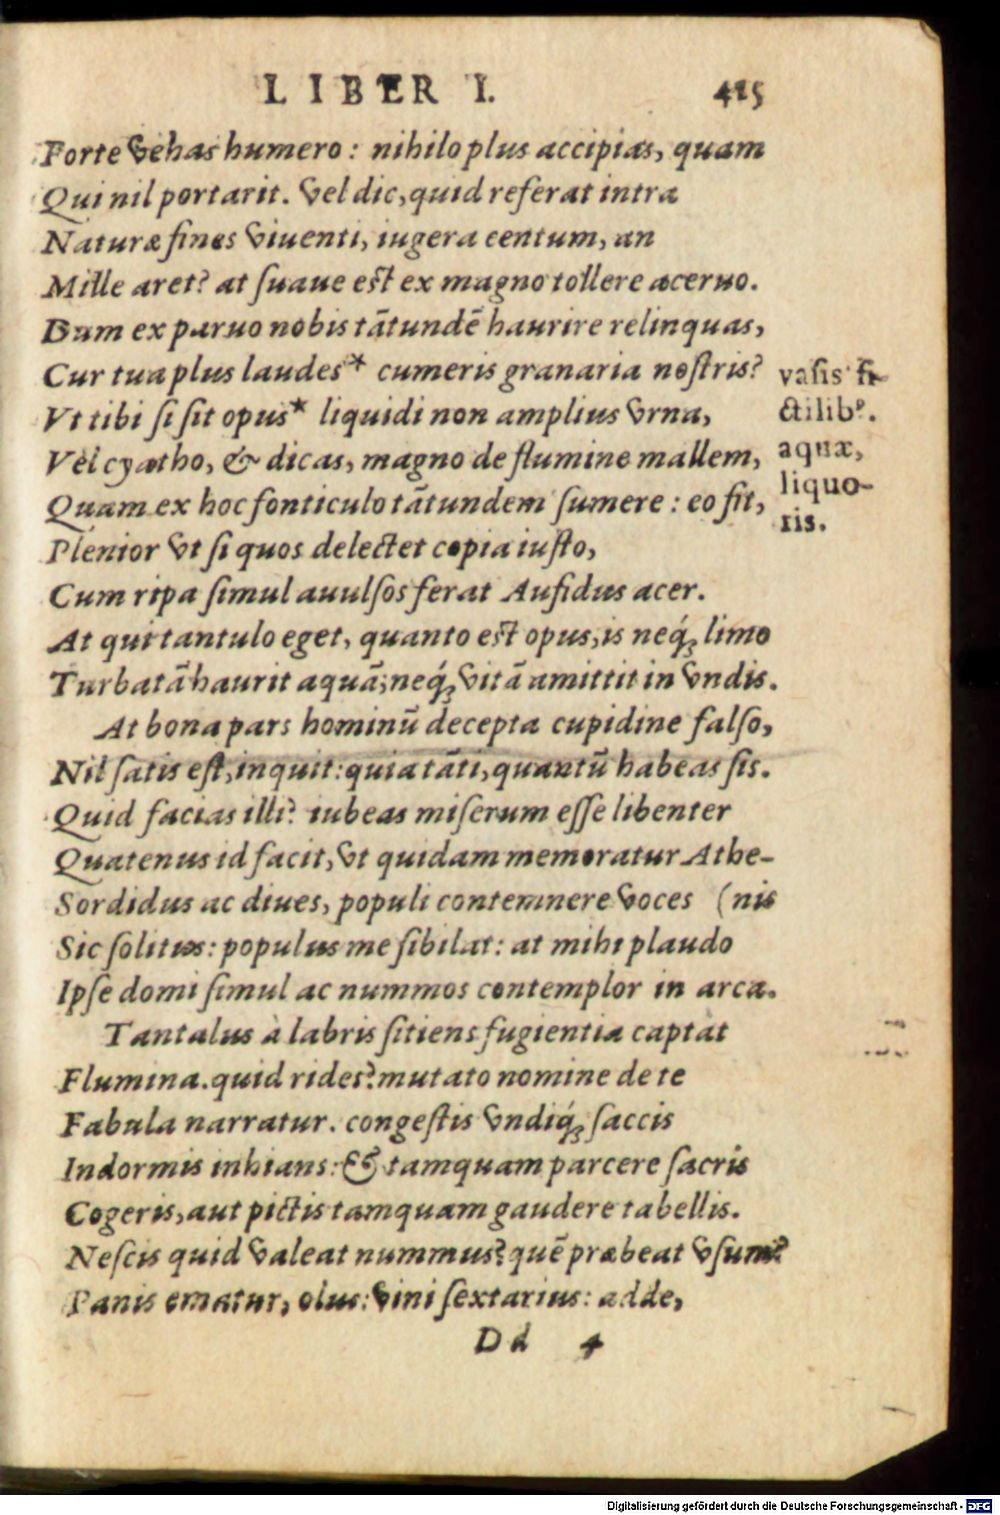 LIBER I. 415
Forte vehas humero: nihilo plus accipias, quam
Qui nil portarit. vel dic, quid referat intra
Naturæ fines viuenti, iugera centum, an
Mille aret? at ſuaue eſt ex magno tollere aceruo.
Dum ex paruo nobis tãtundẽ haurire relinquas,
Cur tua plus laudes* cumeris granaria noſtris?
Vt tibi ſi ſit opus* liquidi non amplius vrna,
Vel cyatho, & dicas, magno de flumine mallem,
Quam ex hoc fonticulo tãtundem ſumere: eo fit,
Plenior vt ſi quos delectet copia iuſto,
Cum ripa ſimul auulſos ferat Aufidus acer.
At qui tantulo eget, quanto eſt opus, is neq́ꝫ limo
Turbatã haurit aquã; neq́ꝫ vitã amittit in vndis.
At bona pars hominũ decepta cupidine falſo,
Nil ſatis eſt, inquit: quia tãti, quantũ habeas ſis.
Quid facias illi? iubeas miſerum eſſe libenter
Quatenus id facit, vt quidam memoratur Athe-
Sordidus ac diues, populi contemnere voces (nis
Sic ſolitus: populus me ſibilat: at mihi plaudo
Ipſe domi ſimul ac nummos contemplor in arca.
Tantalus à labris ſitiens fugientia captat
Flumina. quid rides? mutato nomine de te
Fabula narratur. congeſtis vndiq́ꝫ ſaccis
Indormis inhians: & tamquam parcere ſacris
Cogeris, aut pictis tamquam gaudere tabellis.
Neſcis quid valeat nummus? quẽ præbeat vſum?
Panis ematur, olus: vini ſextarius: adde,
Dd 4
vaſis fi-
ctilibꝰ.
aquæ,
liquo-
ris.
Digitalisierung gefördert durch die Deutsche Forschungsgemeinschaft - DFG